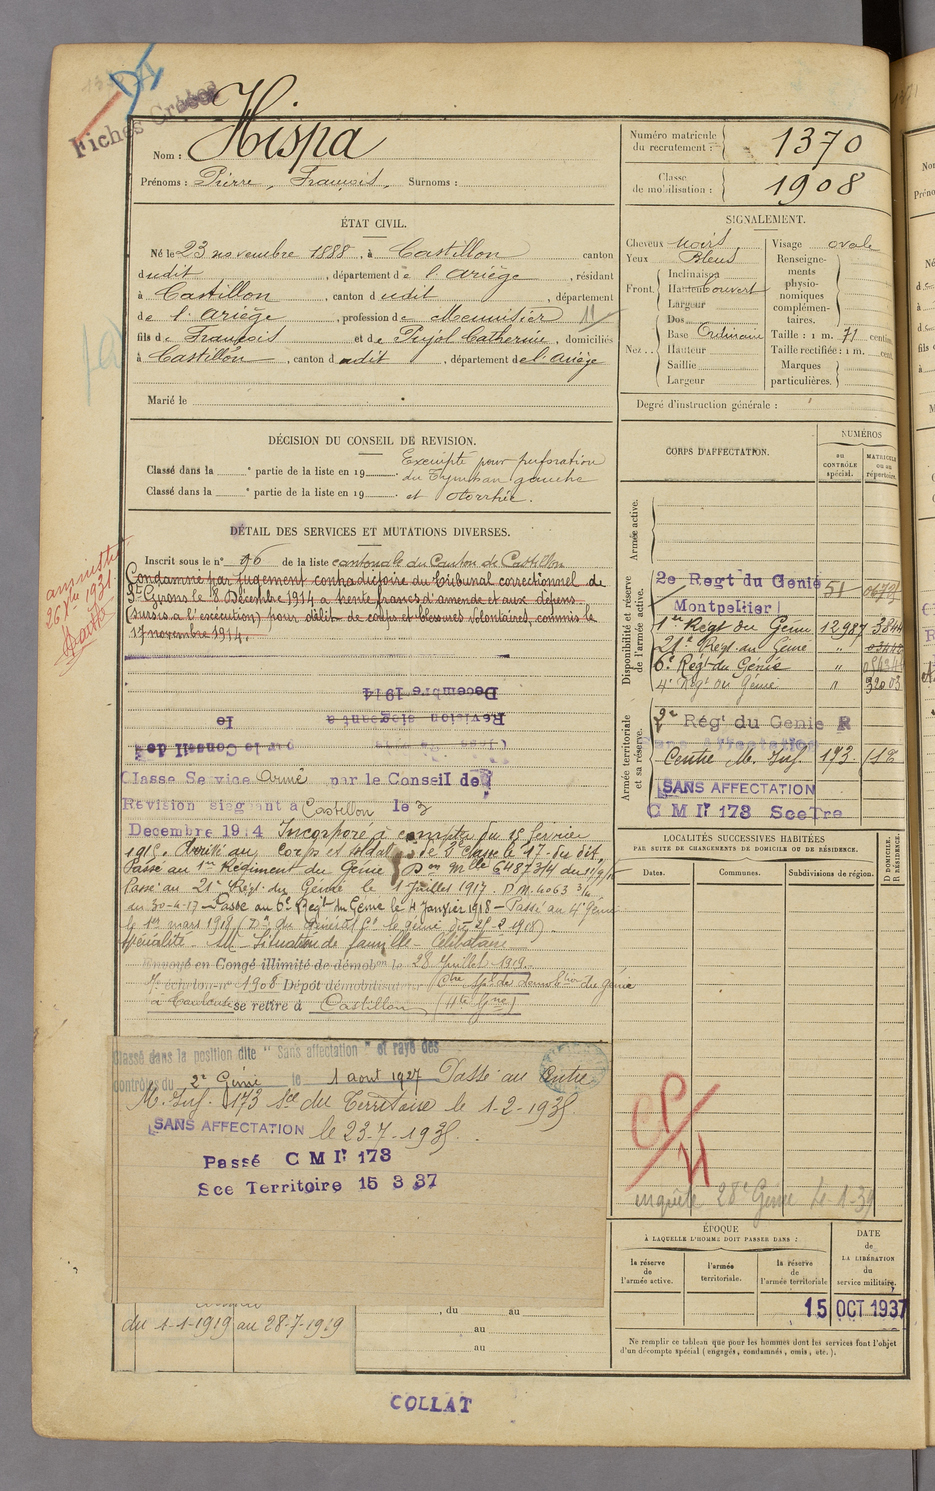 Fiches Créées
Nom : Hispa
Prénoms : Pierre, François, Surnoms :
Numéro matricule
du recrutement : 1370
Classe
de mobilisation : 1908
ÉTAT CIVIL.
Né le 23 novembre 1888, à Castillon canton
dudit, département de l'Ariège, résidant
à Castillon, canton dudit, département
de l'Ariège, profession de Menuisier
fils de François et de Pujol Catherine, domiciliés
à Castillon, canton dudit, département de l'Ariège
Marié le
SIGNALEMENT.
Cheveux noirs
Yeux Bleus
Front.
Inclinaison
Hauteur Couvert
Largeur
Nez..
Dos
Base Ordinaire
Hauteur
Saillie
Largeur
Visage ovale
Renseigne-
ments
physio-
nomiques
complémen-
taires.
Taille : 1 m. 71 centim.
Taille rectifiée : 1 m. cent.
Marques
particulières.
Degré d'instruction générale :
DÉCISION DU CONSEIL DE REVISION.
Classé dans la ° partie de la liste en 19
Classé dans la ° partie de la liste en 19
Exempté pour perforation
du Tympan gauche
et otorrhée.
DÉTAIL DES SERVICES ET MUTATIONS DIVERSES.
Inscrit sous le n° 96 de la liste cantonale du Canton de Castillon
Condamné par jugement contradictoire du Tribunal correctionnel de
St Girons le 8 Décembre 1914 à trente francs d'amende et aux dépens
(sursis à l'exécution) pour délit de coups et blessures volontaires, commis le
17 novembre 1914.
amnistié
1931.
Decembre 1914
Revision siegeant à le
par le Conseil de
Classe Service Armé par le Conseil de
Revision siegeant à Castillon le 3
Decembre 1914 Incorporé à compter du 15 février
1915. Arrivé au corps et soldat de 2e classe le 17 du dit,
Passé au 1er Régiment du Génie
Passé au 21e Régt du Génie le 1 Juillet 1917. D M 4063 3/4
du 30-4-17 - Passé au 6e Régt du Génie le 4 Janvier 1918 - Passé au 4e Génie
le 1er mars 1918
spécialité M - Situation de famille - Célibataire
Envoyé en Congé illimité de démobon le 28 Juillet 1919.
échelon n° 1908 Dépôt démobilisateur du génie
à se retire à Castillon (Hte Gne)
Classé dans la position dite " Sans affectation " et rayé des
contrôles du 2e Génie le 1 aout 1927 Passé au Centre
M. Inf. 173 Sce du Territoire le 1-2-1935
SANS AFFECTATION le 23-7-1935.
Passé C M Ir 173
Sce Territoire 15 3 37
du 1-1-1919 au 28-7-1919
, du au
au
au
CORPS D'AFFECTATION.
NUMÉROS
au
CONTRÔLE
spécial.
MATRICULE
ou au
répertoire.
Armée active.
Disponibilité et réserve
de l'armée active.
2e Regt du Genie 51
Montpellier
1er Régt du Génie 12987 3844
21e Régt du Génie "
6e Régt du Génie "
4e Régt du Génie " 32003
Armée territoriale
et sa réserve.
2e Rég. du Genie R
Sans Affectation
Centre M. Inf. 173
SANS AFFECTATION
C M Ir 173 Sce Tre
LOCALITÉS SUCCESSIVES HABITÉES
PAR SUITE DE CHANGEMENTS DE DOMICILE OU DE RÉSIDENCE.
Dates.
Communes.
Subdivisions de région.
D DOMICILE.
R RÉSIDENCE.
enquête 28e Génie
ÉPOQUE
À LAQUELLE L'HOMME DOIT PASSER DANS :
la réserve
de
l'armée active.
l'armée
territoriale.
la réserve
de
l'armée territoriale
DATE
de
LA LIBÉRATION
du
service militaire.
15 OCT 1937
Ne remplir ce tableau que pour les hommes dont les services font l'objet
d'un décompte spécial (engagés, condamnés, omis, etc.).
COLLAT